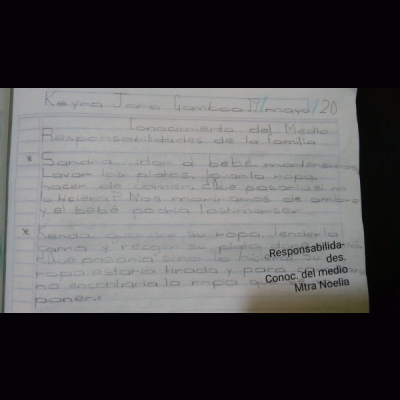 Keyra Jane Gamboa 19/mayo/20
Conocimiento del Medio
Responsabilidades de la familia
Sandra: a bebé
Lavar los platos, ropa,
hacer de comer. ¿Que pasaria si no
lo hiciera? Nos moririamos de
y el bebé podria lastimarse.
Kenda, su ropa, tender la
cama y recoger su plato
¿Que pasaria si no lo hiciera? Su
ropa estaria tirada y para
no encontraria la ropa que
poner.
Responsabilida-
des.
Conoc. del medio
Mtra Noelia